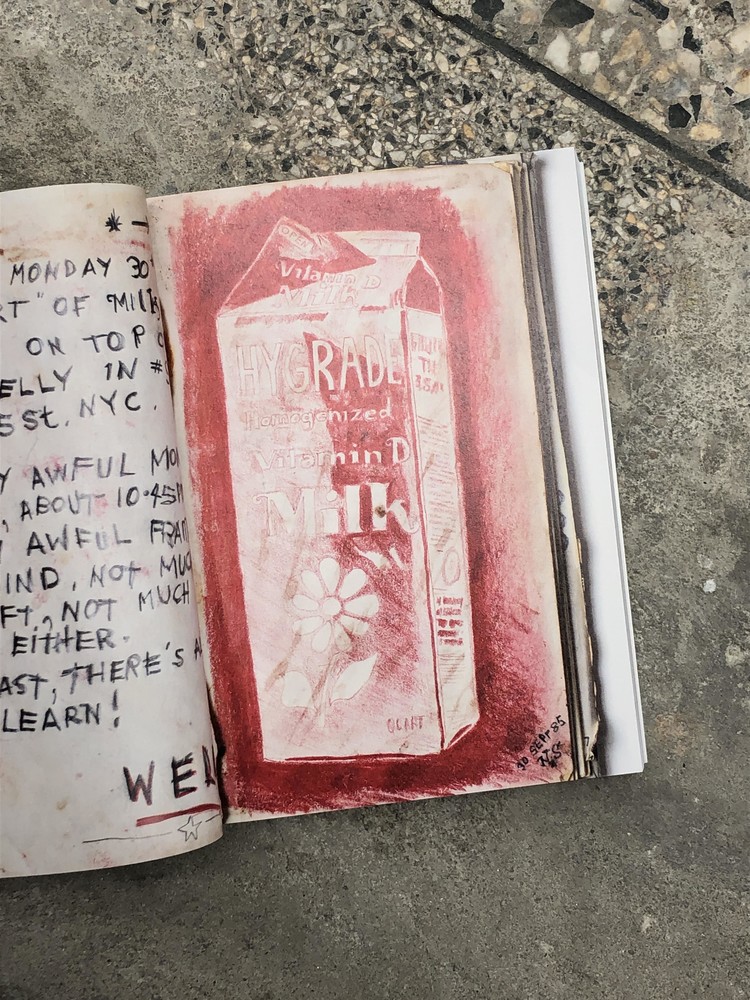 MONDAY 30
RT" OF MILK
ON TOP
ELLY IN #
5 St. NYC.
Y AWFUL MO
, ABOUT 10.45
AWFUL
IND, NOT MUC
FT, NOT MUCH
EITHER.
AST, THERE'S A
LEARN!
WEA
OPEN
Vitamin D
Milk
HYGRADE
Homogenized
Vitamin D
Milk
QUART
30 SEPT 85